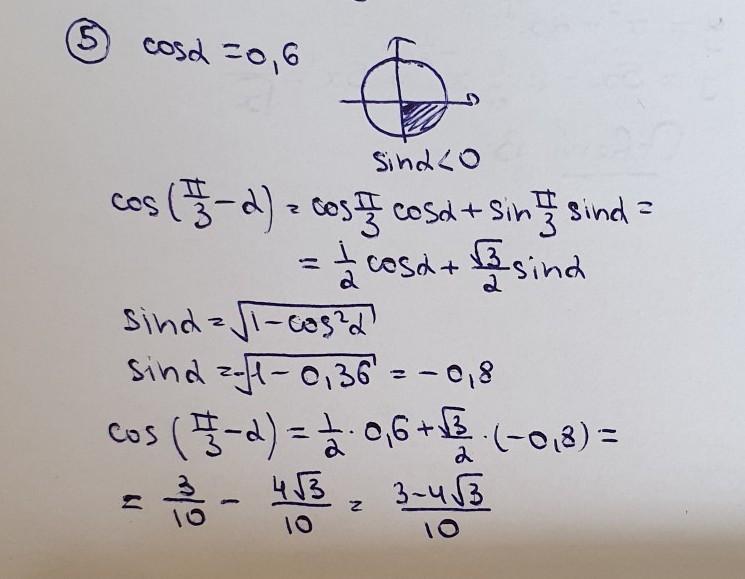 ⑤ cosα = 0,6
sinα < 0
cos(π/3 - α) = cos π/3 cosα + sin π/3 sinα =
= 1/2 cosα + √3/2 sinα
sinα = √(1 - cos²α)
sinα = -√(1 - 0,36) = -0,8
cos(π/3 - α) = 1/2 · 0,6 + √3/2 · (-0,8) =
= 3/10 - 4√3/10 = (3-4√3)/10